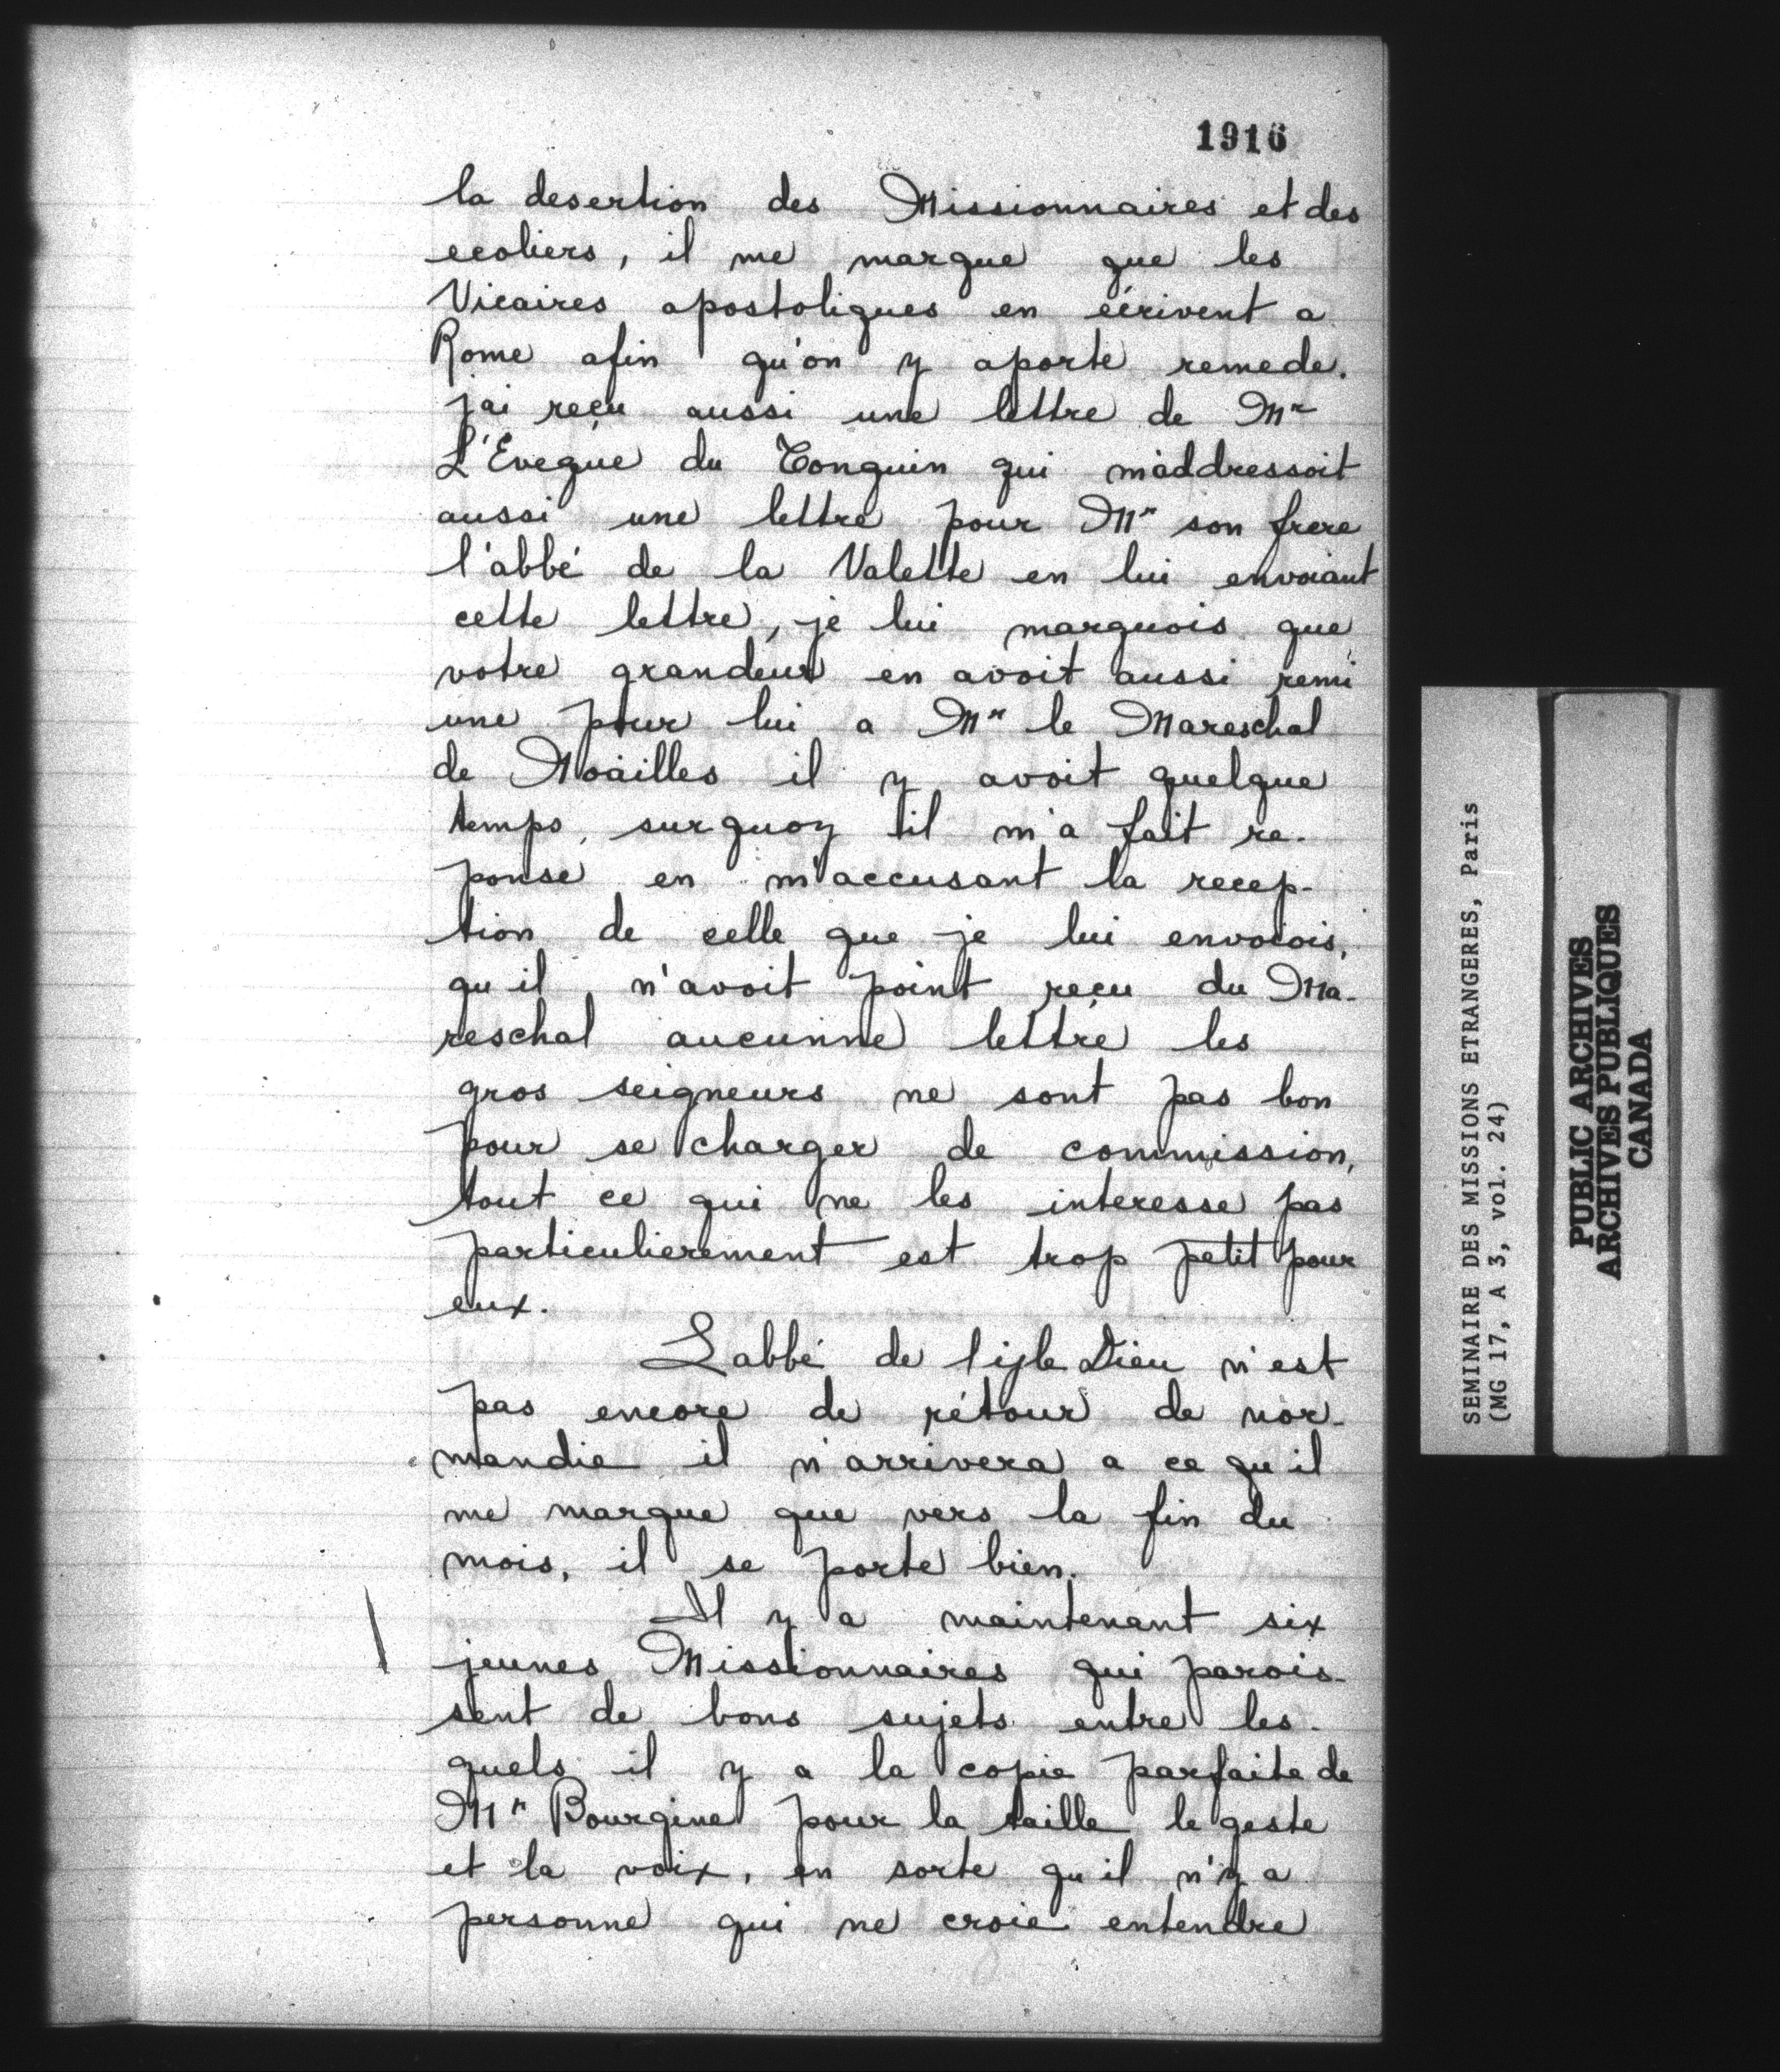 1916
la desertion des Missionnaires et des
ecoliers, il me marque que les
Vicaires apostoliques en écrivent a
Rome afin qu'on y aporte remede.
j'ai reçu aussi une lettre de Mr
L'Eveque du Tonquin qui m'addressoit
aussi une lettre pour Mr son frere
l'abbé de la Valette en lui envoiant
cette lettre, je lui marquois que
votre grandeur en avoit aussi remi
une pour lui a Mr le Mareschal
de Noailles il y avoit quelque
temps, surquoy il m'a fait re-
ponse en m'accusant la recep-
tion de celle que je lui envoiois,
qu'il n'avoit point reçu du Ma-
reschal aucunne lettre les
gros seigneurs ne sont pas bon
pour se charger de commission,
tout ce qui ne les interesse pas
particulierement est trop petit pour
eux.
L'abbé de l'isle Dieu n'est
pas encore de rétour de nor-
mandie il n'arrivera a ce qu'il
me marque que vers la fin du
mois, il se porte bien.
Il y a maintenant six
jeunes Missionnaires qui parois-
sent de bons sujets entre les-
quels il y a la copie parfaite de
Mr Bourgine pour la taille le geste
et la voix, en sorte qu'il n'y a
personne qui ne croie entendre
SEMINAIRE DES MISSIONS ETRANGERES, Paris
(MG 17, A 3, vol. 24)
PUBLIC ARCHIVES
ARCHIVES PUBLIQUES
CANADA